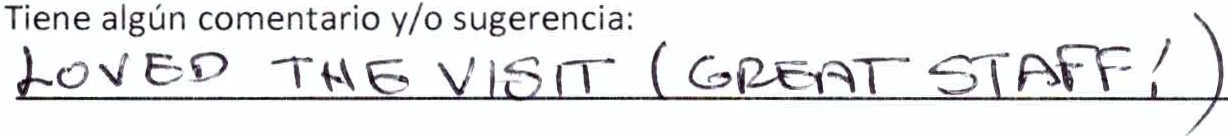 Tiene algún comentario y/o sugerencia:
LOVED THE VISIT (GREAT STAFF!)